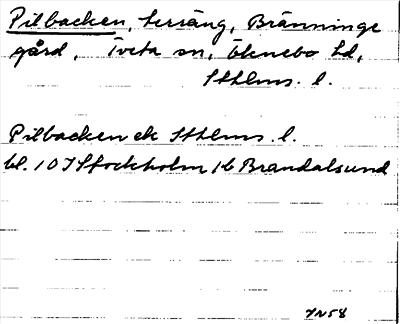 Pilbacken, terräng, Bränninge
gård, Tveta sn, Öknebo hd,
Sthlms. l.
Pilbacken ek Sthlms. l.
bl. 10 I Stockholm, 1b Brandalsund